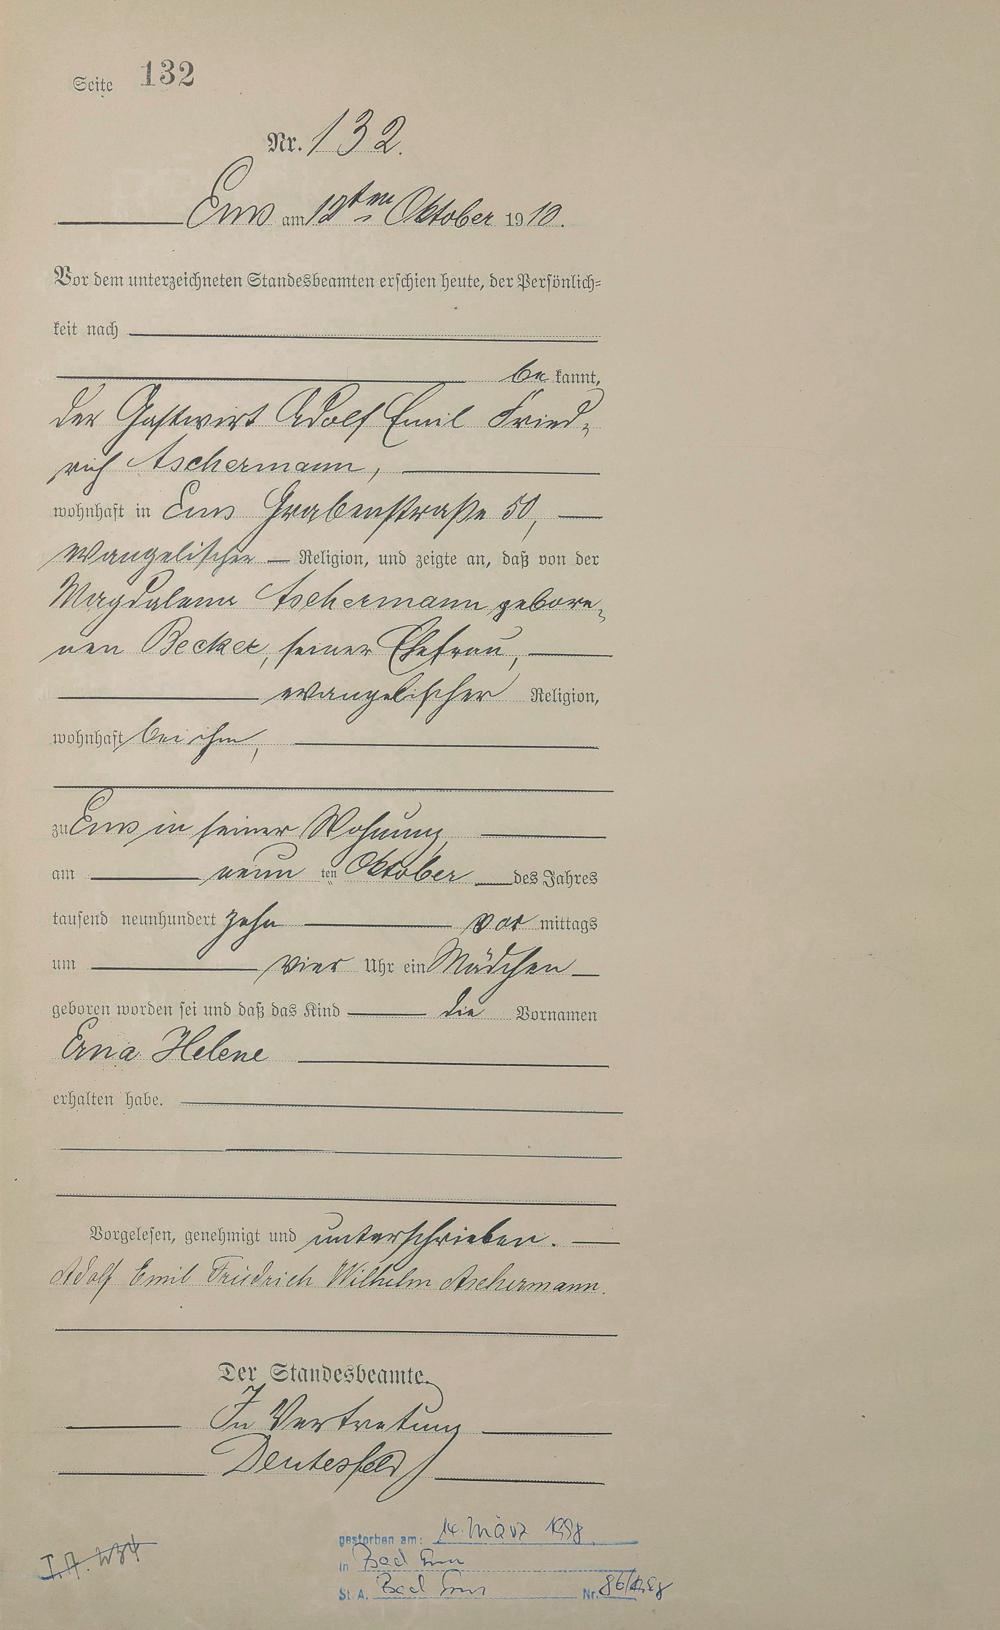 Seite 132
Nr. 132.
Ems am 12ten Oktober 1910.
Vor dem unterzeichneten Standesbeamten erschien heute, der Persönlich-
keit nach
bekannt,
der Gastwirt Adolf Emil Fried-
rich Aschermann,
wohnhaft in Ems Grabenstraße 50,
evangelischer Religion, und zeigte an, daß von der
Magdalena Aschermann gebore-
nen Becker, seiner Ehefrau,
evangelischer Religion,
wohnhaft bei ihm,
zu Ems in seiner Wohnung
am neunten Oktober des Jahres
tausend neunhundert zehn vormittags
um vier Uhr ein Mädchen
geboren worden sei und daß das Kind die Vornamen
Erna Helene
erhalten habe.
Vorgelesen, genehmigt und unterschrieben.
Adolf Emil Friedrich Wilhelm Aschermann.
Der Standesbeamte.
In Vertretung
Deutesfeld
gestorben am: 14. März 1998
in Bad Ems
St. A. Bad Ems Nr.